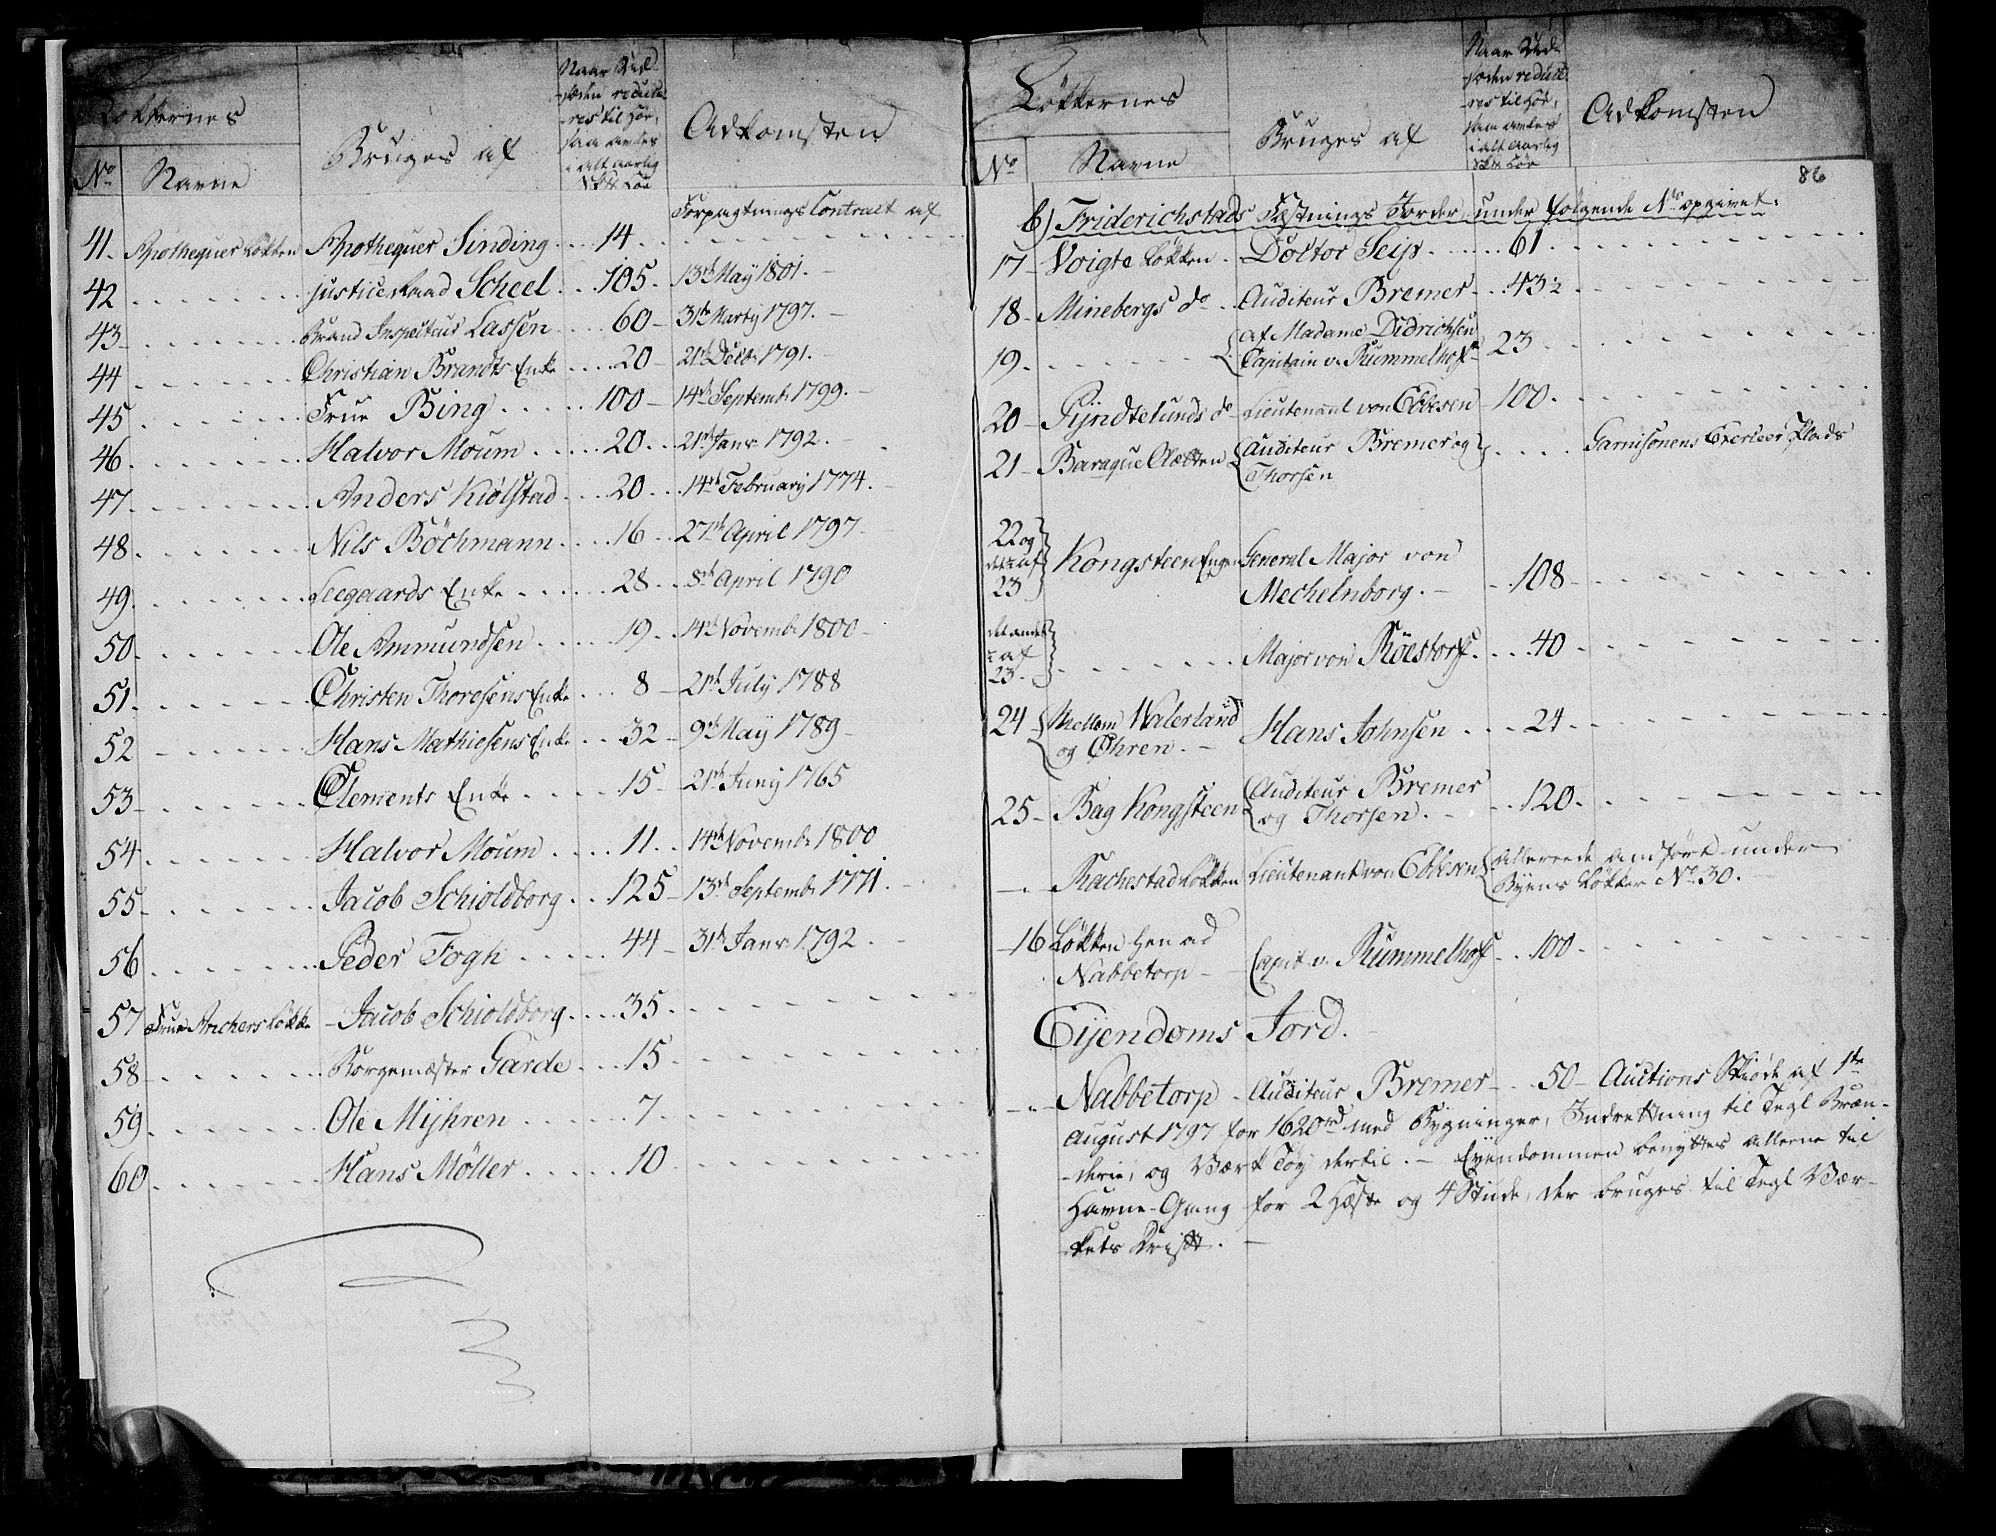 Løkkernes
No
Navne
Bruges af
Naar Ud-
-sæden reduce-
-res til Høe,
saa avles
i alt aarlig
Skt Høe
Adkomsten
Forpagtnings Contract af
41. Apothequer Løkken Apothequer Sinding 14.
42 justiceraad Scheel 105. 13de May 1801.
43 Brand Inspecteur Lassen 60 31te Marty 1797.
44 Christian Brandts Enke 20 21de Decbr 1791.
45 Frue Bing 100 14de Septembr 1799.
46 Halvor Moum 20 21de Janr 1792.
47 Anders Kiølstad 20 14de February 1774.
48 Nils Böchmann 16 27de April 1797
49 Leegaards Enke 28 8de April 1790
50 Ole Ammundsen 19 14de Novembr 1800
51 Christen Thoresens Enke 8 21de July 1788
52 Hans Mathiesens Enke 32 9de May 1789
53 Clements Enke 15 21de Juny 1765
54 Halvor Moum 11 14de Novembr 1800
55 Jacob Schioldborg 125 13de Septembr 1771.
56 Peder Fogh 44 31te Janr 1792.
57 Frue Anchers Løkke Jacob Schioldborg 35
58 Borgemæster Garde 15
59 Ole Mÿhren 7
60 Hans Möller 10
Løkkernes
No
Navne
Bruges af
Naar Ud-
-sæden reduce-
-res til Høe,
saa avles
i alt aarlig
Skt Høe
Adkomsten
86
b) Friderichstads Fæstnings Jorder under følgende No opgivet:
17 Voigte Løkken Doctor Seip 61
18 Minebergs do Auditeur Bremer 43½
19. af Madame Didrichsen
Capitain v. Rummelhoff 23
20 Pÿndtelunds do Lieutenant von Ebbesen 100.
21 Baraque Sletten Auditeur Bremer og
Thorsen Garnisonens Exerceer Plads
22 og
det ½ af
23 Kongsteen Engen General Major von
Mechelnborg. 108
det andet
½ af
23. Major von Röestorf 40
24 Mellem Walerland
og Øhren. Hans Johnsen 24
25 Bag Kongsteen Auditeur Bremer
og Thorsen. 120.
Rachestad Løkken Lieutenant von Ebbesen Allereede anført under
Byens Løkker No 30.
16 Løkken hen ad
Nabbetorp Capit v. Rummelhoff 100
Eÿendoms Jord.
Nabbetorp Auditeur Bremer 50 Auctions Skiøde af 1te
August 1797 for 1620 rd med Bygninger, Indretning til Tegl Bræn-
-derie, og Værk Tøy dertil. Eyendommen benyttes allene til
Havne-Gang for 2 Hæste og 4 Stude, der bruges til Tegl Vær-
-kets Drift.